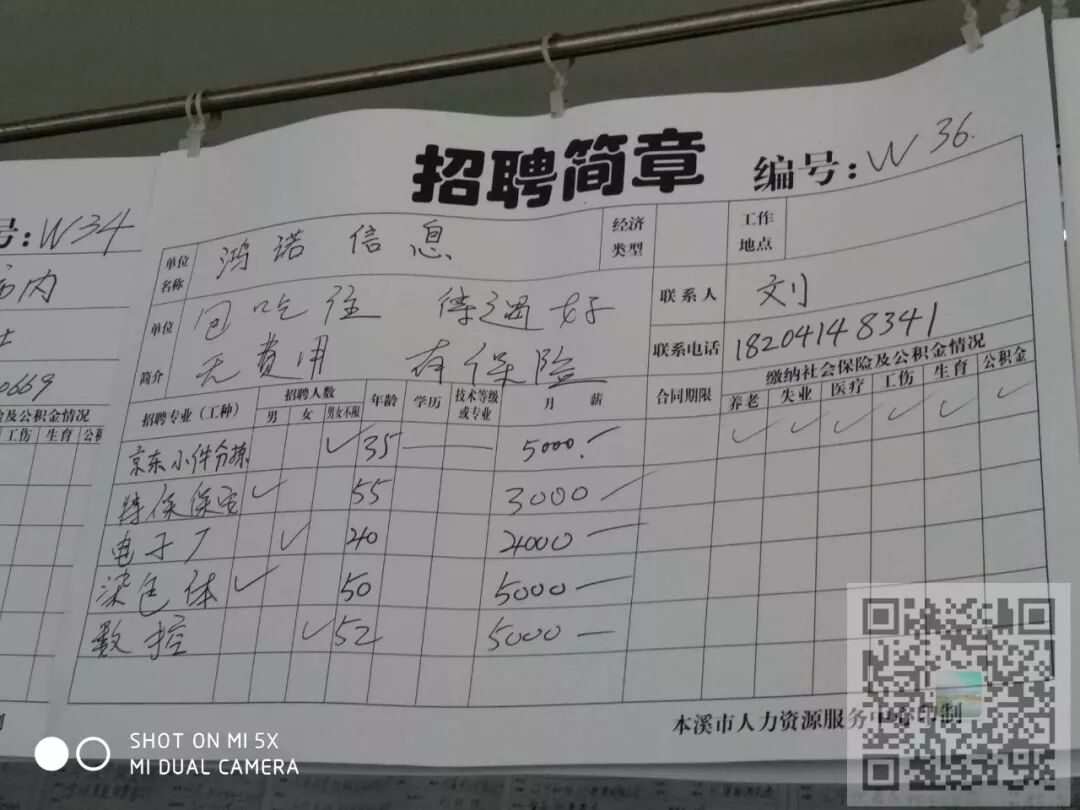 招聘简章 编号:W 36.
号:W34
市内
0669
险及公积金情况
工伤 生育 公积
单位名称 鸿诺 信息 经济类型 工作地点
单位简介 包吃住 待遇好 联系人 刘
无费用 有保险 联系电话 18204148341
招聘专业(工种) 招聘人数 年龄 学历 技术等级或专业 月薪 合同期限 缴纳社会保险及公积金情况
男 女 男女不限 养老 失业 医疗 工伤 生育 公积金
京东小件分拣 ✓ 35 — — 5000.— ✓ ✓ ✓ ✓ ✓ ✓
特保保安 ✓ 55 3000 —
电子厂 ✓ 40 4000 —
染色体 ✓ 50 5000 —
数控 ✓ 52 5000 —
本溪市人力资源服务中心印制
制
SHOT ON MI 5X
MI DUAL CAMERA